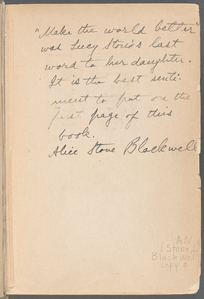 "Make the world better"
was Lucy Stone's last
word to her daughter.
It is the best senti-
ment to put on the
first page of this
book.
Alice Stone Blackwell
Stone
Blackwell
copy 2